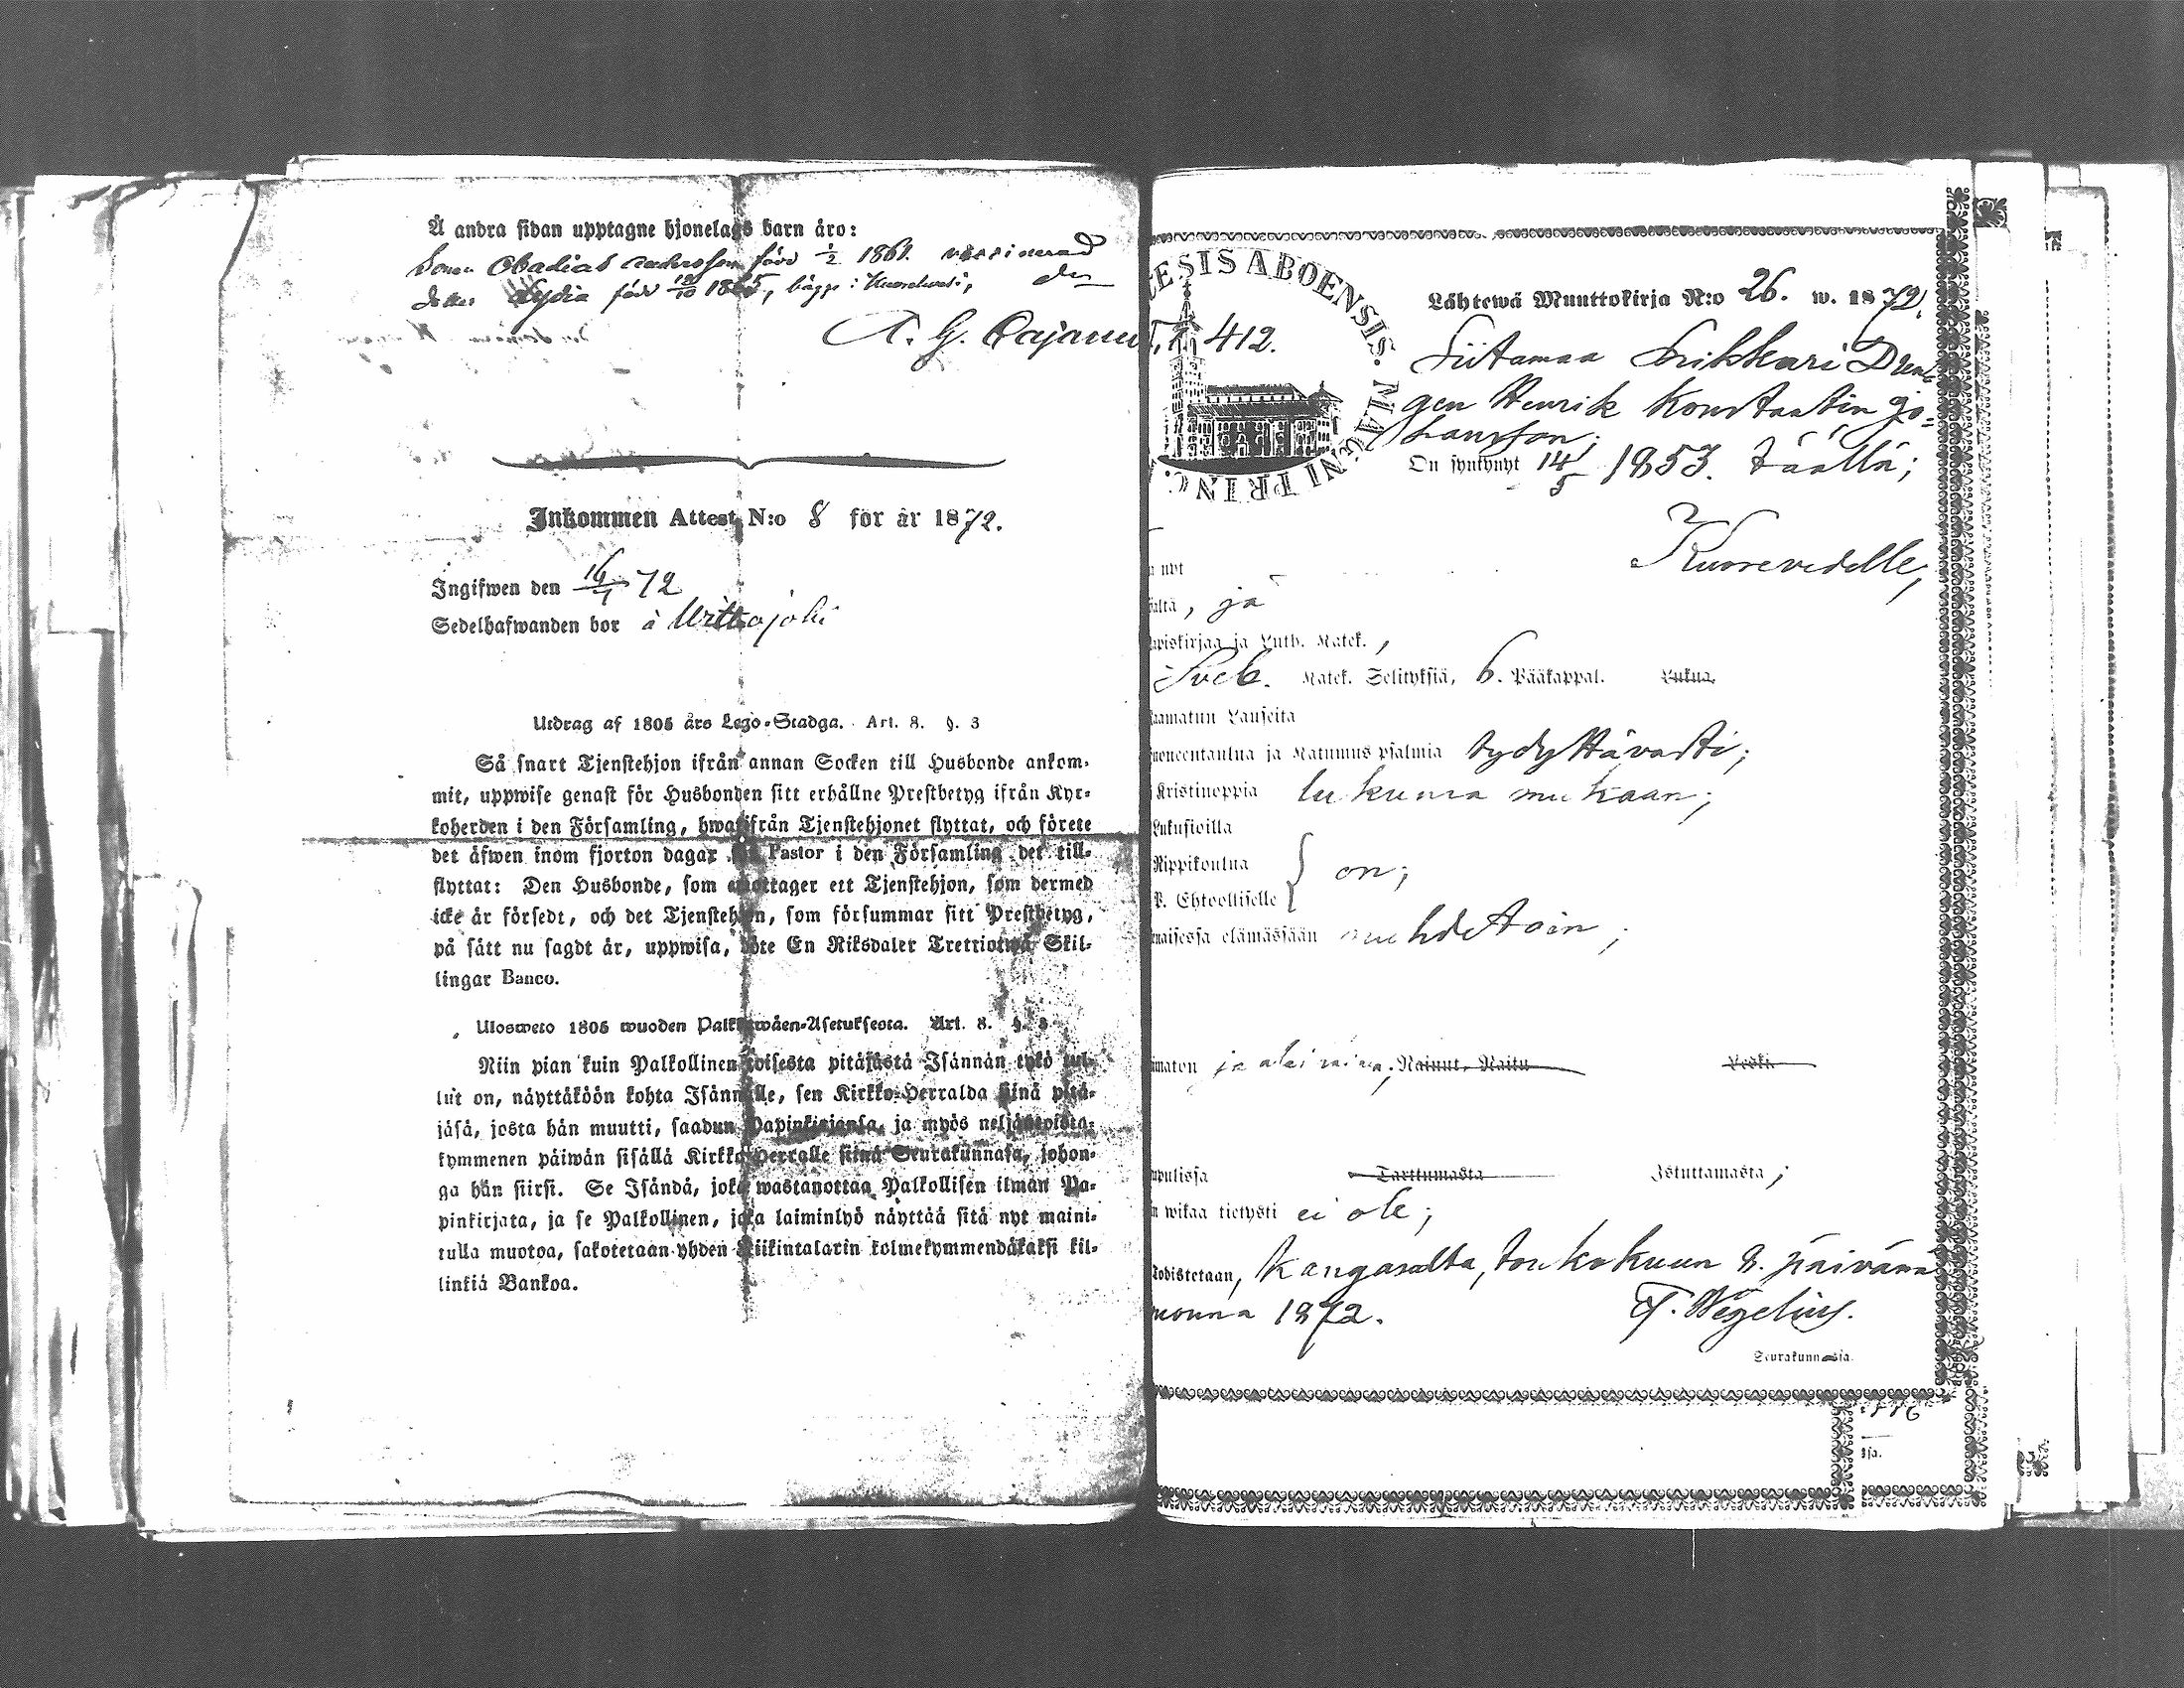 Å andra sidan upptagne hjonelags barn äro:
Sonen Obadias Andersson född 1/2 1861. vaccinerad
dotter Lydia född 18/10 1865, bägge i Kuorehvesi, do
A. G. Cajanus
Inkommen Attest N:o 8 för år 1872.
Ingifwen den 16/ 72
Sedelhafwanden bor å
Utdrag af 1805 års Lego-Stadga. Art. 8. §. 3
Så snart Tjenstehjon ifrån annan Socken till Husbonde ankom-
mit, uppwise genast för Husbonden sitt erhållne Prestbetyg ifrån Kyr-
koherden i den Församling, hwarifrån Tjenstehjonet flyttat, och förete
det äfwen inom fjorton dagar för Pastor i den Församling det till-
flyttat: Den Husbonde, som emottager ett Tjenstehjon, som dermed
icke är försedt, och det Tjenstehjon, som försummar sitt Prestbetyg,
på sätt nu sagdt är, uppwisa, böte En Riksdaler Trettiotwå Skil-
lingar Banco.
Ulosweto 1805 wuoden Palkkawäen-Asetuksesta. Art. 8. §. 3
Niin pian kuin Palkollinen toisesta pitäjästä Isännän tykö tul-
lut on, näyttäköön kohta Isännälle, sen Kirkko-Herralda siinä pitä-
jäsä, josta hän muutti, saadun Papinkirjansa, ja myös neljäntoista-
kymmenen päiwän sisällä Kirkko-Herralle siinä Seurakunnasa, johon-
ga hän siirsi. Se Isändä, joka wastanottaa Palkollisen ilman Pa-
pinkirjata, ja se Palkollinen, joka laiminlyö näyttää sitä nyt maini-
tulla muotoa, sakotetaan yhden Riikintalarin kolmekymmendäkaksi kil-
linkiä Bankoa.
ESIS ABOENSIS. MAGNI PRINC.
Lähtewä Muuttokirja N:o 26. w. 1872.
412.
Siitamaa Drän-
gen Henrik Konstantin Jo-
hansson;
On syntynyt 14/5 1853. täällä;
nyt Kuorevedelle,
ältä, ja
apiskirjaa ja Luth. Katek.,
Sveb. Katek. Selityksiä, 6. Pääkappal. Lukua.
aamatun Lauseita
uoneentaulua ja Katumus psalmia tydyttävästi;
Kristinoppia lukunsa mukaan;
Lukusioilla
Rippikoulua on;
P. Ehtoolliselle
maisessa elämässään nuhdetoin;
imaton ja alaikäinen; Nainut, Naitu Leski
upulissa Tarttumasta Istuttamasta;
n wikaa tietysti ei ole;
Todistetaan, Kangasalta, toukokuun 8. päivänä
vuonna 1872. F. Wegelius.
Seurakunnassa.
sa.